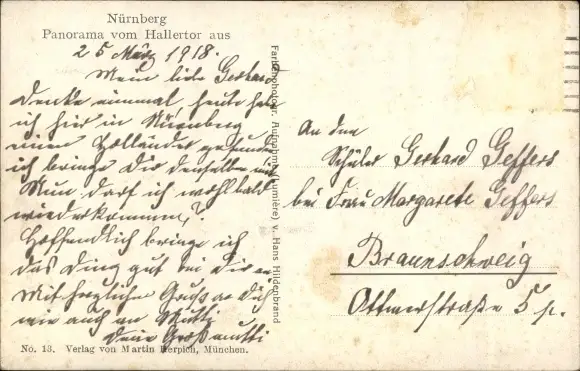 Nürnberg
Panorama vom Hallertor aus
25 März 1918.
Mein lieber Gerhard
Denke einmal, heute habe
ich hier in Nürnberg
einen Holländer gefunden
ich bringe Dir denselben mit
Nun darf ich wohl bald
wiederkommen?
Hoffendlich bringe ich
das Ding gut bei Dir an
Mit herzlichem Gruß an Dich
wie auch an Mutti
Deine Großmutti
No. 13. Verlag von Martin Herpich, München.
Farbenphotogr. Aufnahme (Lumière) v. Hans Hildenbrand
An den
Schüler Gerhard Geffers
bei Frau Margarete Geffers
Braunschweig
Ottmerstraße 5 p.